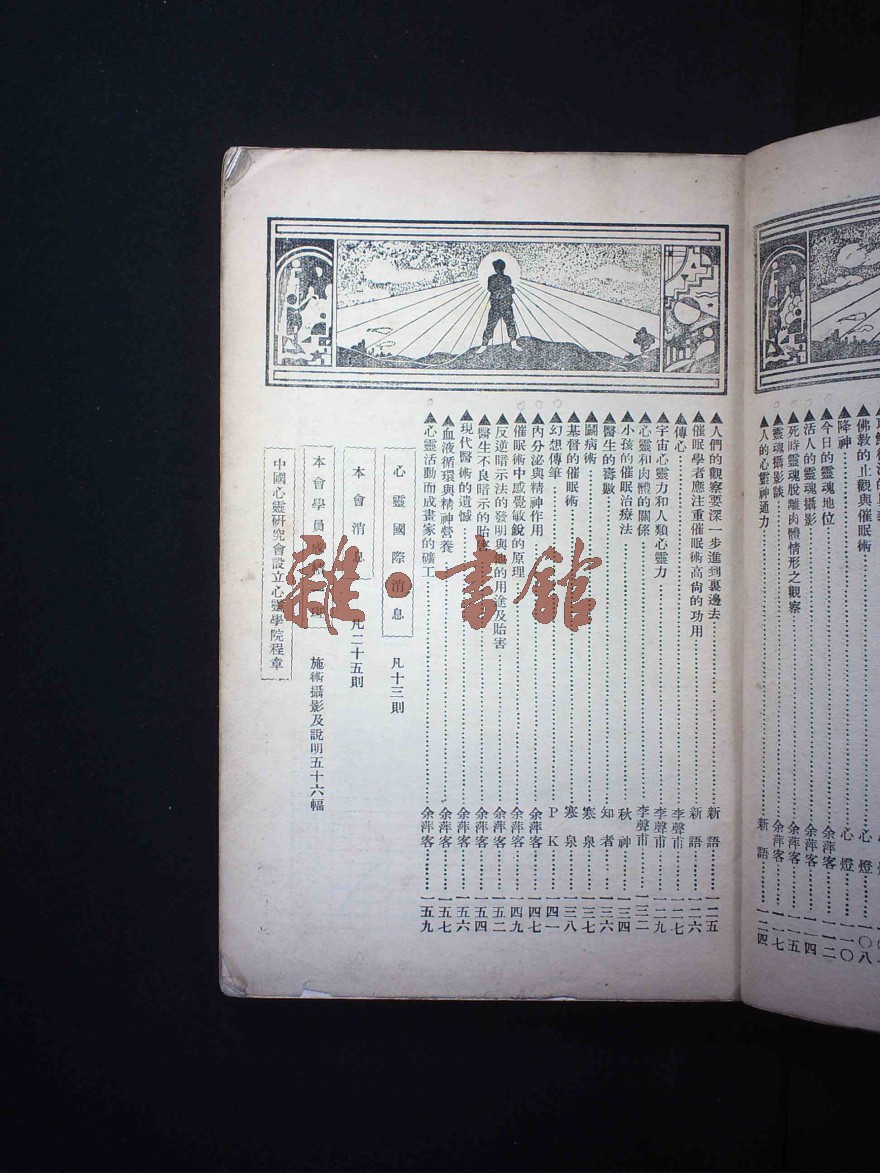 佛教的止觀與催眠術……心燈……一〇八
▲降神……心燈……一一〇
▲今日的靈魂地位……余萍客……一一二
▲活人的靈魂攝影……余萍客……一一四
▲死時靈魂脫離肉體情形之觀察……余萍客……一一五
▲靈魂攝影談……余萍客……一一七
▲人的心靈神通力……新語……一二四
▲人們的觀察要深一步進到裏邊去……新語……一二五
▲催眠學者應注重催眠術高尙的功用……新語……一二六
▲傳心……李聲甫……一二七
▲宇宙心靈力和人類心靈力……李聲甫……一二九
▲心靈和肉體的關係……李聲甫……一三二
▲小孩的催眠治療法……秋神……一三四
▲醫生的壽數……知者……一三六
▲鬭病術……寒泉……一三七
▲基督的催眠術……寒泉……一三八
▲幻想傳筆……PK……一四一
▲內分泌與精神作用……余萍客……一四七
▲催眠術中感覺敏銳的原理……余萍客……一四九
▲反逆暗示法的發明與他的用途及貽害……余萍客……一五二
▲醫生不良暗示的貽害……余萍客……一五四
▲現代醫術的遺憾……余萍客……一五六
▲血液循環與精神營養……余萍客……一五七
▲心靈活動而成畫家的礦工……余萍客……一五九
心靈國際消息 凡十三則
本會消息 凡二十五則
本會學員成 施術攝影及說明五十六幅
中國心靈硏究會設立心靈學院程章
雜·書館